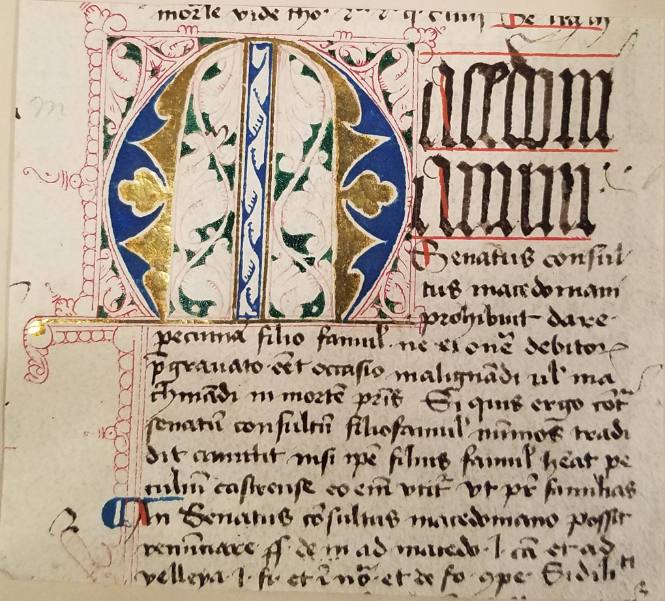 morle vide tho
M acedoni
anum
Senatus consul
tus macedoniani
prohibuit dare
pecuniā filio famil' ne ei onē debitor
p̄grauato eēt occasio malignādi ul' ma
chināndi in mortē pr̄is Si quis ergo cōt
senatū consultū filiofamil' mimos tradi
dit amittit nisi ip̄e filius famil' hēat pe
culiū castrense eo em̄ utit' ut pr̄ familias
An Senatus cōsultus macedoniano possit
renūciare ff de in ad macedo l cā et ad
velleya l fi et ī no et de fo ope Si dili